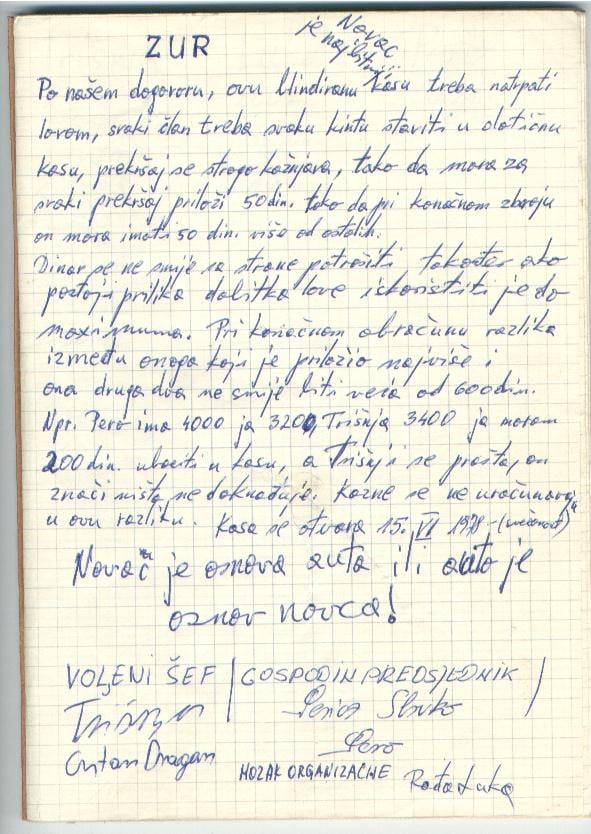 ZUR
Novac
je najbitniji
Po našem dogovoru, ovu blindiranu kasu treba natrpati
lovom, svaki član treba svaku kintu staviti u dotičnu
kasu, prekršaj se strogo kažnjava, tako da mora za
svaki prekršaj priloži 50 din. tako da pri konačnom zbroju
on mora imati 50 din. više od ostalih.
Dinar se ne smije sa strane potrošiti također ako
postoji prilika dobitka love iskoristiti je do
maximuma. Pri konačnom obračunu razlika
između onoga koji je priložio najviše i
ona druga dva ne smije biti veća od 600 din.
Npr. Pero ima 4000 ja 3200, Trišnja 3400 ja moram
200 din. ubaciti u kasu, a Trišnji se prašta, on
znači ništa ne doknađuje. Kazne se ne uračunavaju
u ovu razliku. Kasa se otvara 15. VI 1978 - (svečanost)
Novac je osnova auta ili auto je
osnov novca!
VOLJENI ŠEF / GOSPODIN PREDSJEDNIK /
Trišnja
Slavko
Pero
Dragan
MOZAK ORGANIZACIJE
Luka